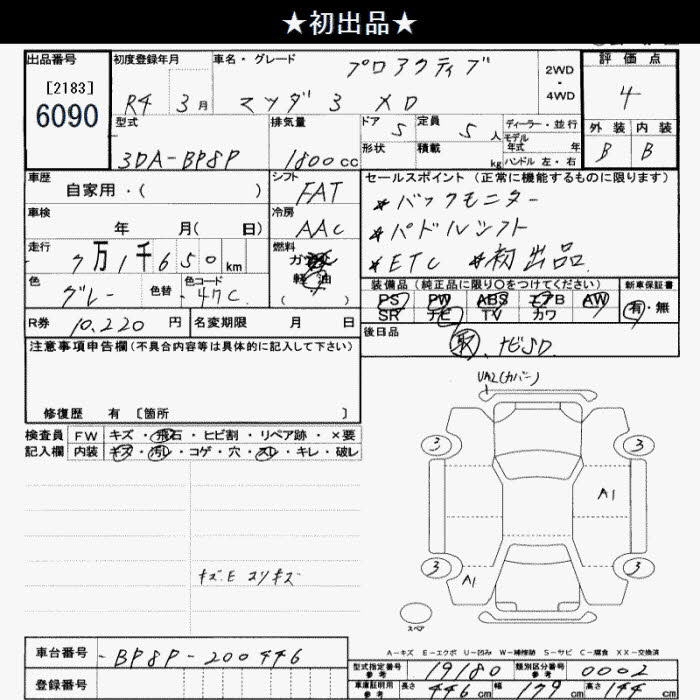 ★初出品★
出品番号 初度登録年月 車名・グレード プロアクティブ 2WD・4WD 評価点
[2183]
6090 R4 3月 マツダ3 XD 4
型式 排気量 ドア 5 定員 5人 ディーラー・並行 外装 内装
3DA-BP8P 1800cc 形状 積載 kg モデル年式 年 ハンドル 左・右 B B
車歴 自家用・( ) シフト FAT セールスポイント (正常に機能するものに限ります)
車検 年 月( 日) 冷房 AAC ★バックモニター
★パドルシフト
走行 7万1千650km 燃料 ★ETC ★初出品
色 グレー 色替 色コード 47C 軽油 ( ) 装備品 (純正品に限り○をつけてください) 新車保証書
PS PW ABS エアB AW 有・無
SR ナビ TV カワ
R券 10,220円 名変期限 月 日 後日品
取、ナビSD
注意事項申告欄(不具合内容等は具体的に記入して下さい)
修復歴 有 [箇所 ]
検査員 FW キズ・飛石・ヒビ割・リペア跡・×要
記入欄 内装 キズ・汚レ・コゲ・穴・スレ・キレ・破レ
UA2(カバー)
3 3
A1
3 3
A1
スペア
A-キズ E-エクボ U-凹み W-補修跡 S-サビ C-腐食 XX-交換済
車台番号 -BP8P-200446
登録番号
型式指定番号 参考 19180 類別区分番号 参考 0002
車庫証明用 参考 長さ 446cm 幅 179cm 高さ 144cm